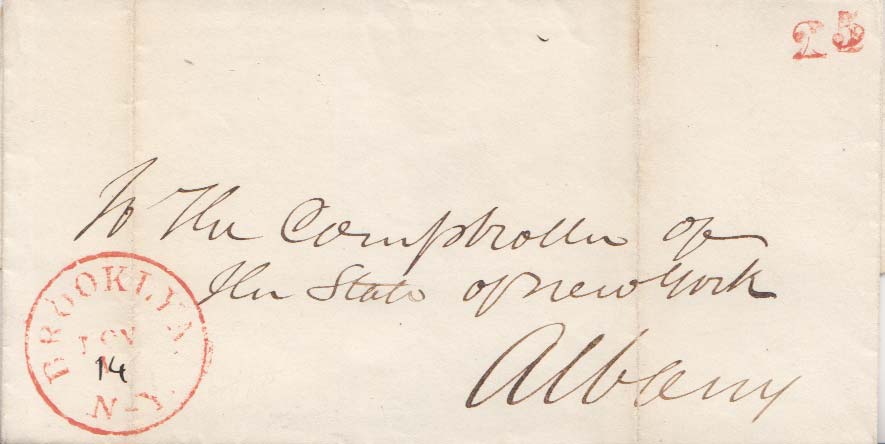 25
To The Comptroller of
The State of New York
Albany
BROOKLYN
NOV
14
N-Y